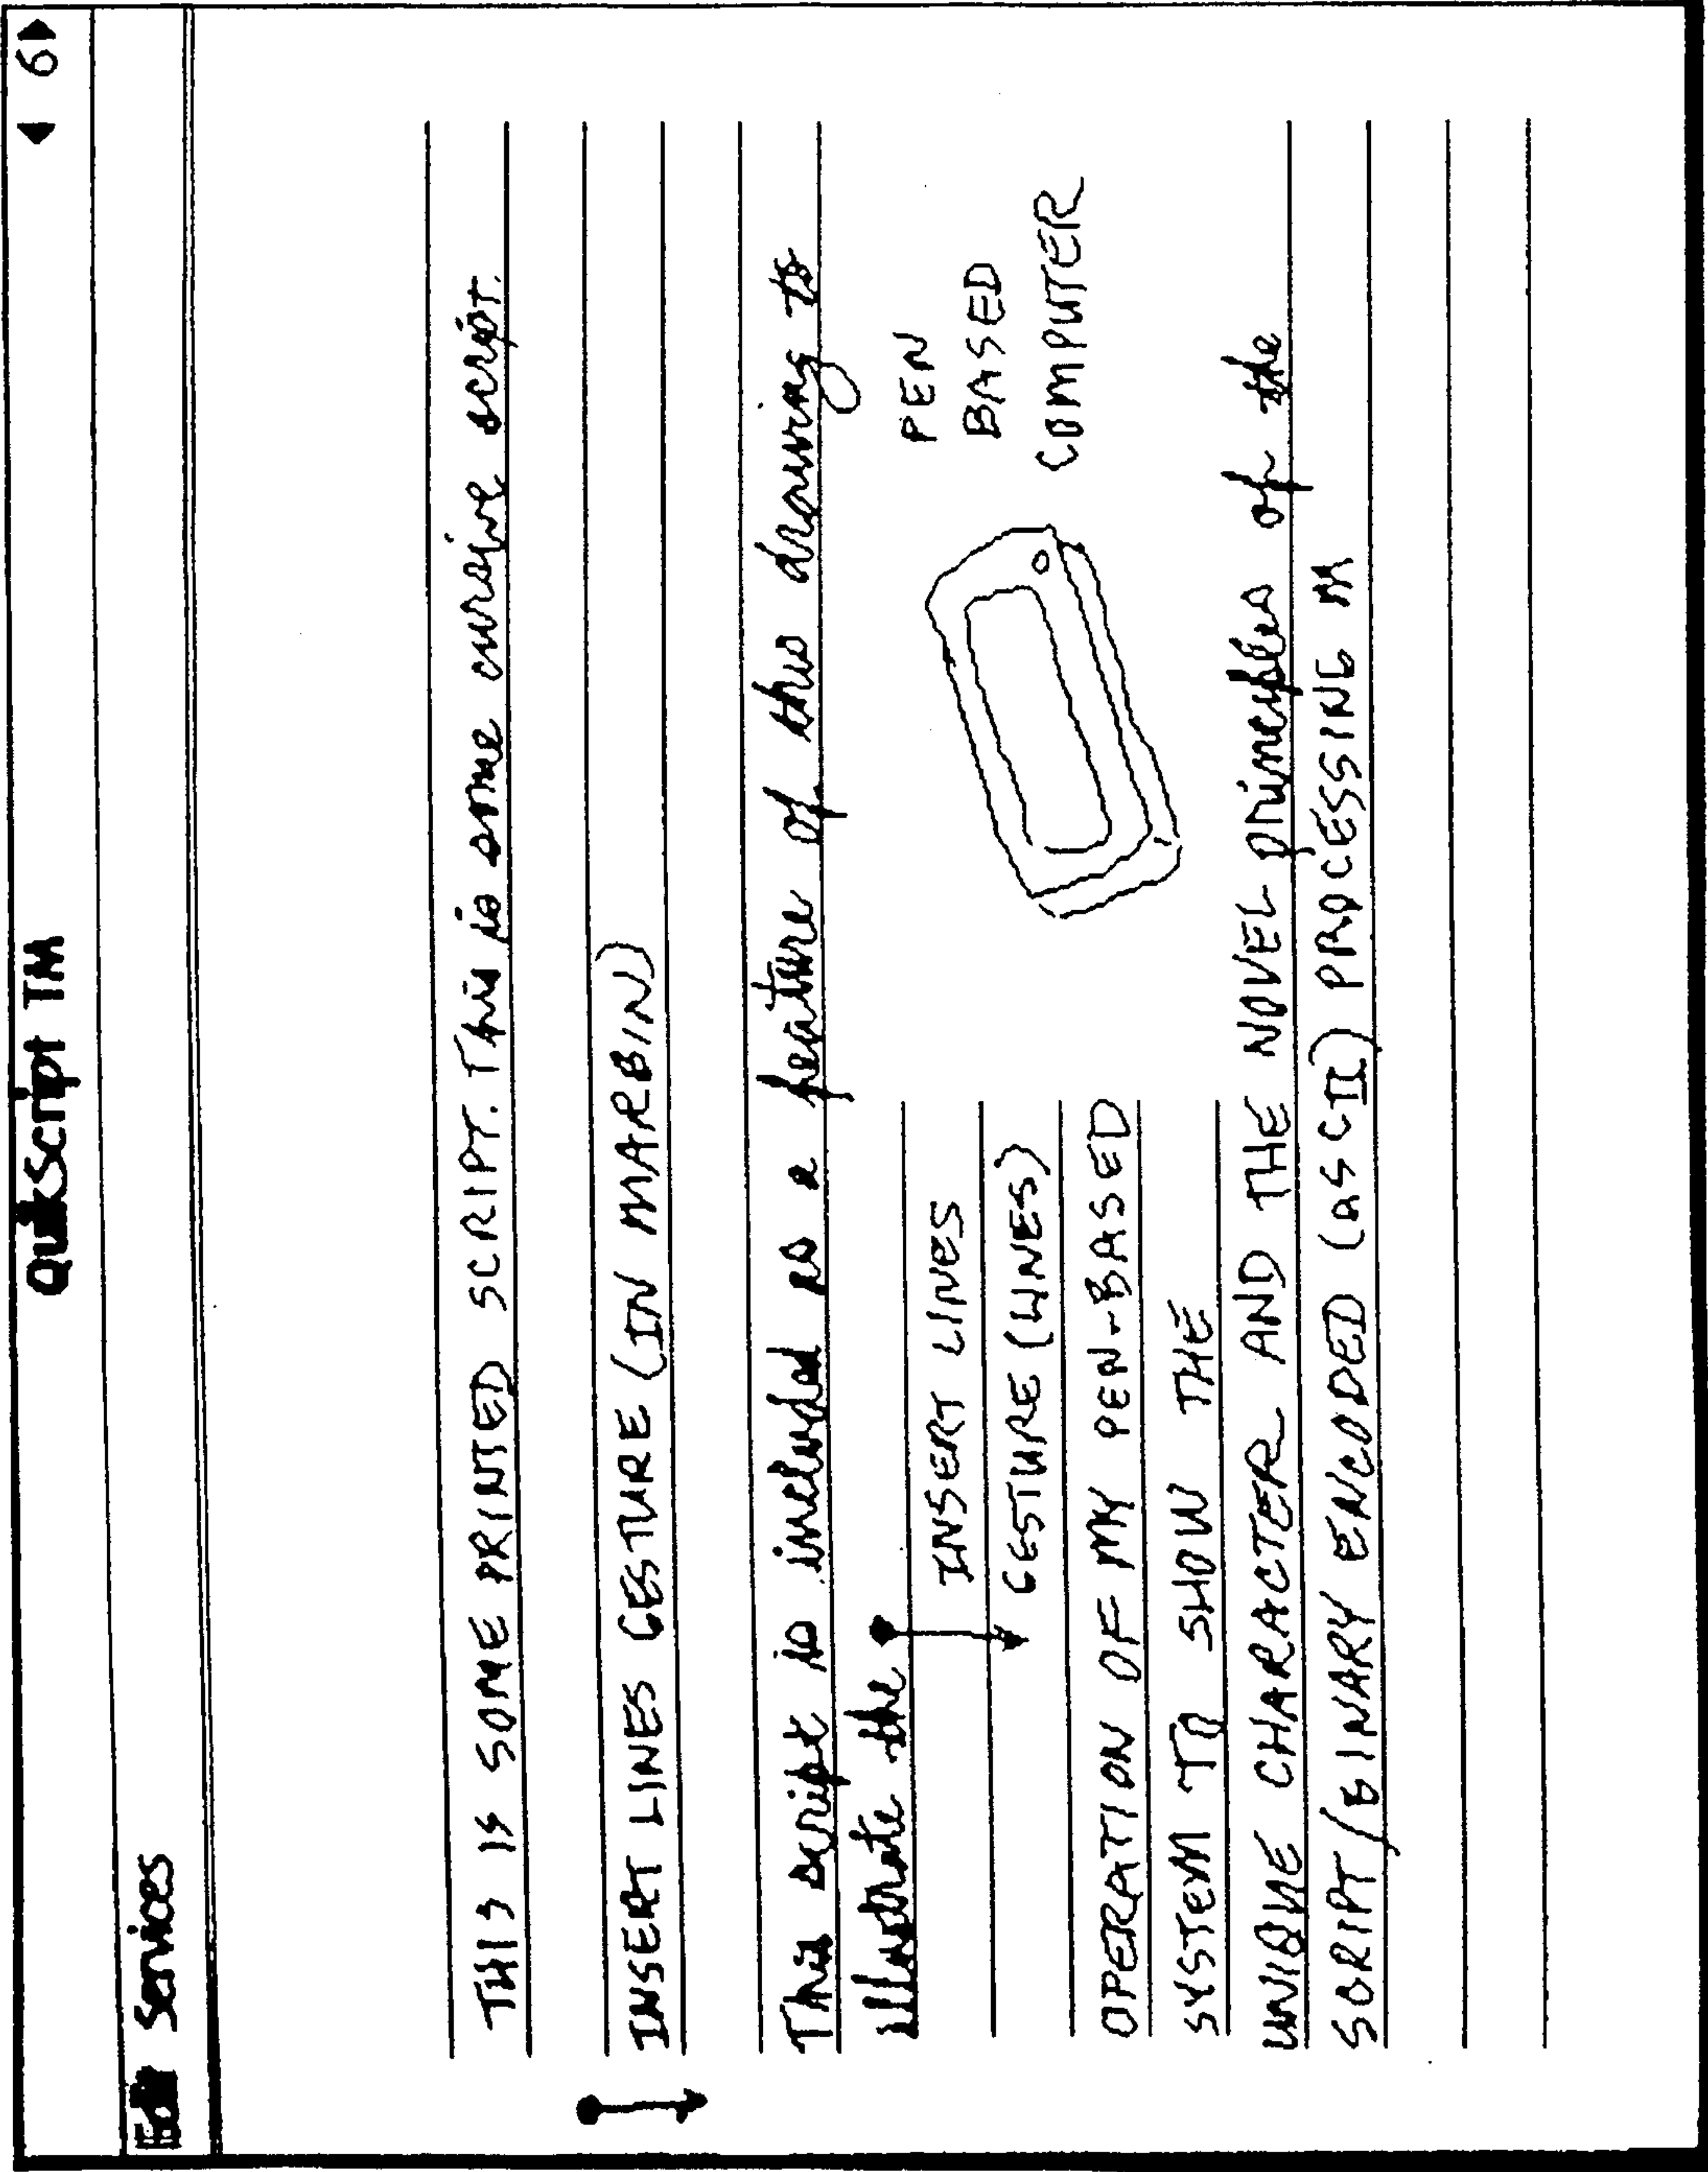 QuikScript TM
◀ 6 ▶
Edit Services
THIS IS SOME PRINTED SCRIPT. This is some cursive script.
INSERT LINES GESTURE (IN MARGIN)
This script is included as a feature of this drawing to
illustrate the
INSERT LINES
GESTURE (LINES)
PEN
BASED
COMPUTER
OPERATION OF MY PEN-BASED
SYSTEM TO SHOW THE
UNIQUE CHARACTER AND THE NOVEL principles of the
SCRIPT/BINARY ENCODED (ASCII) PROCESSING M